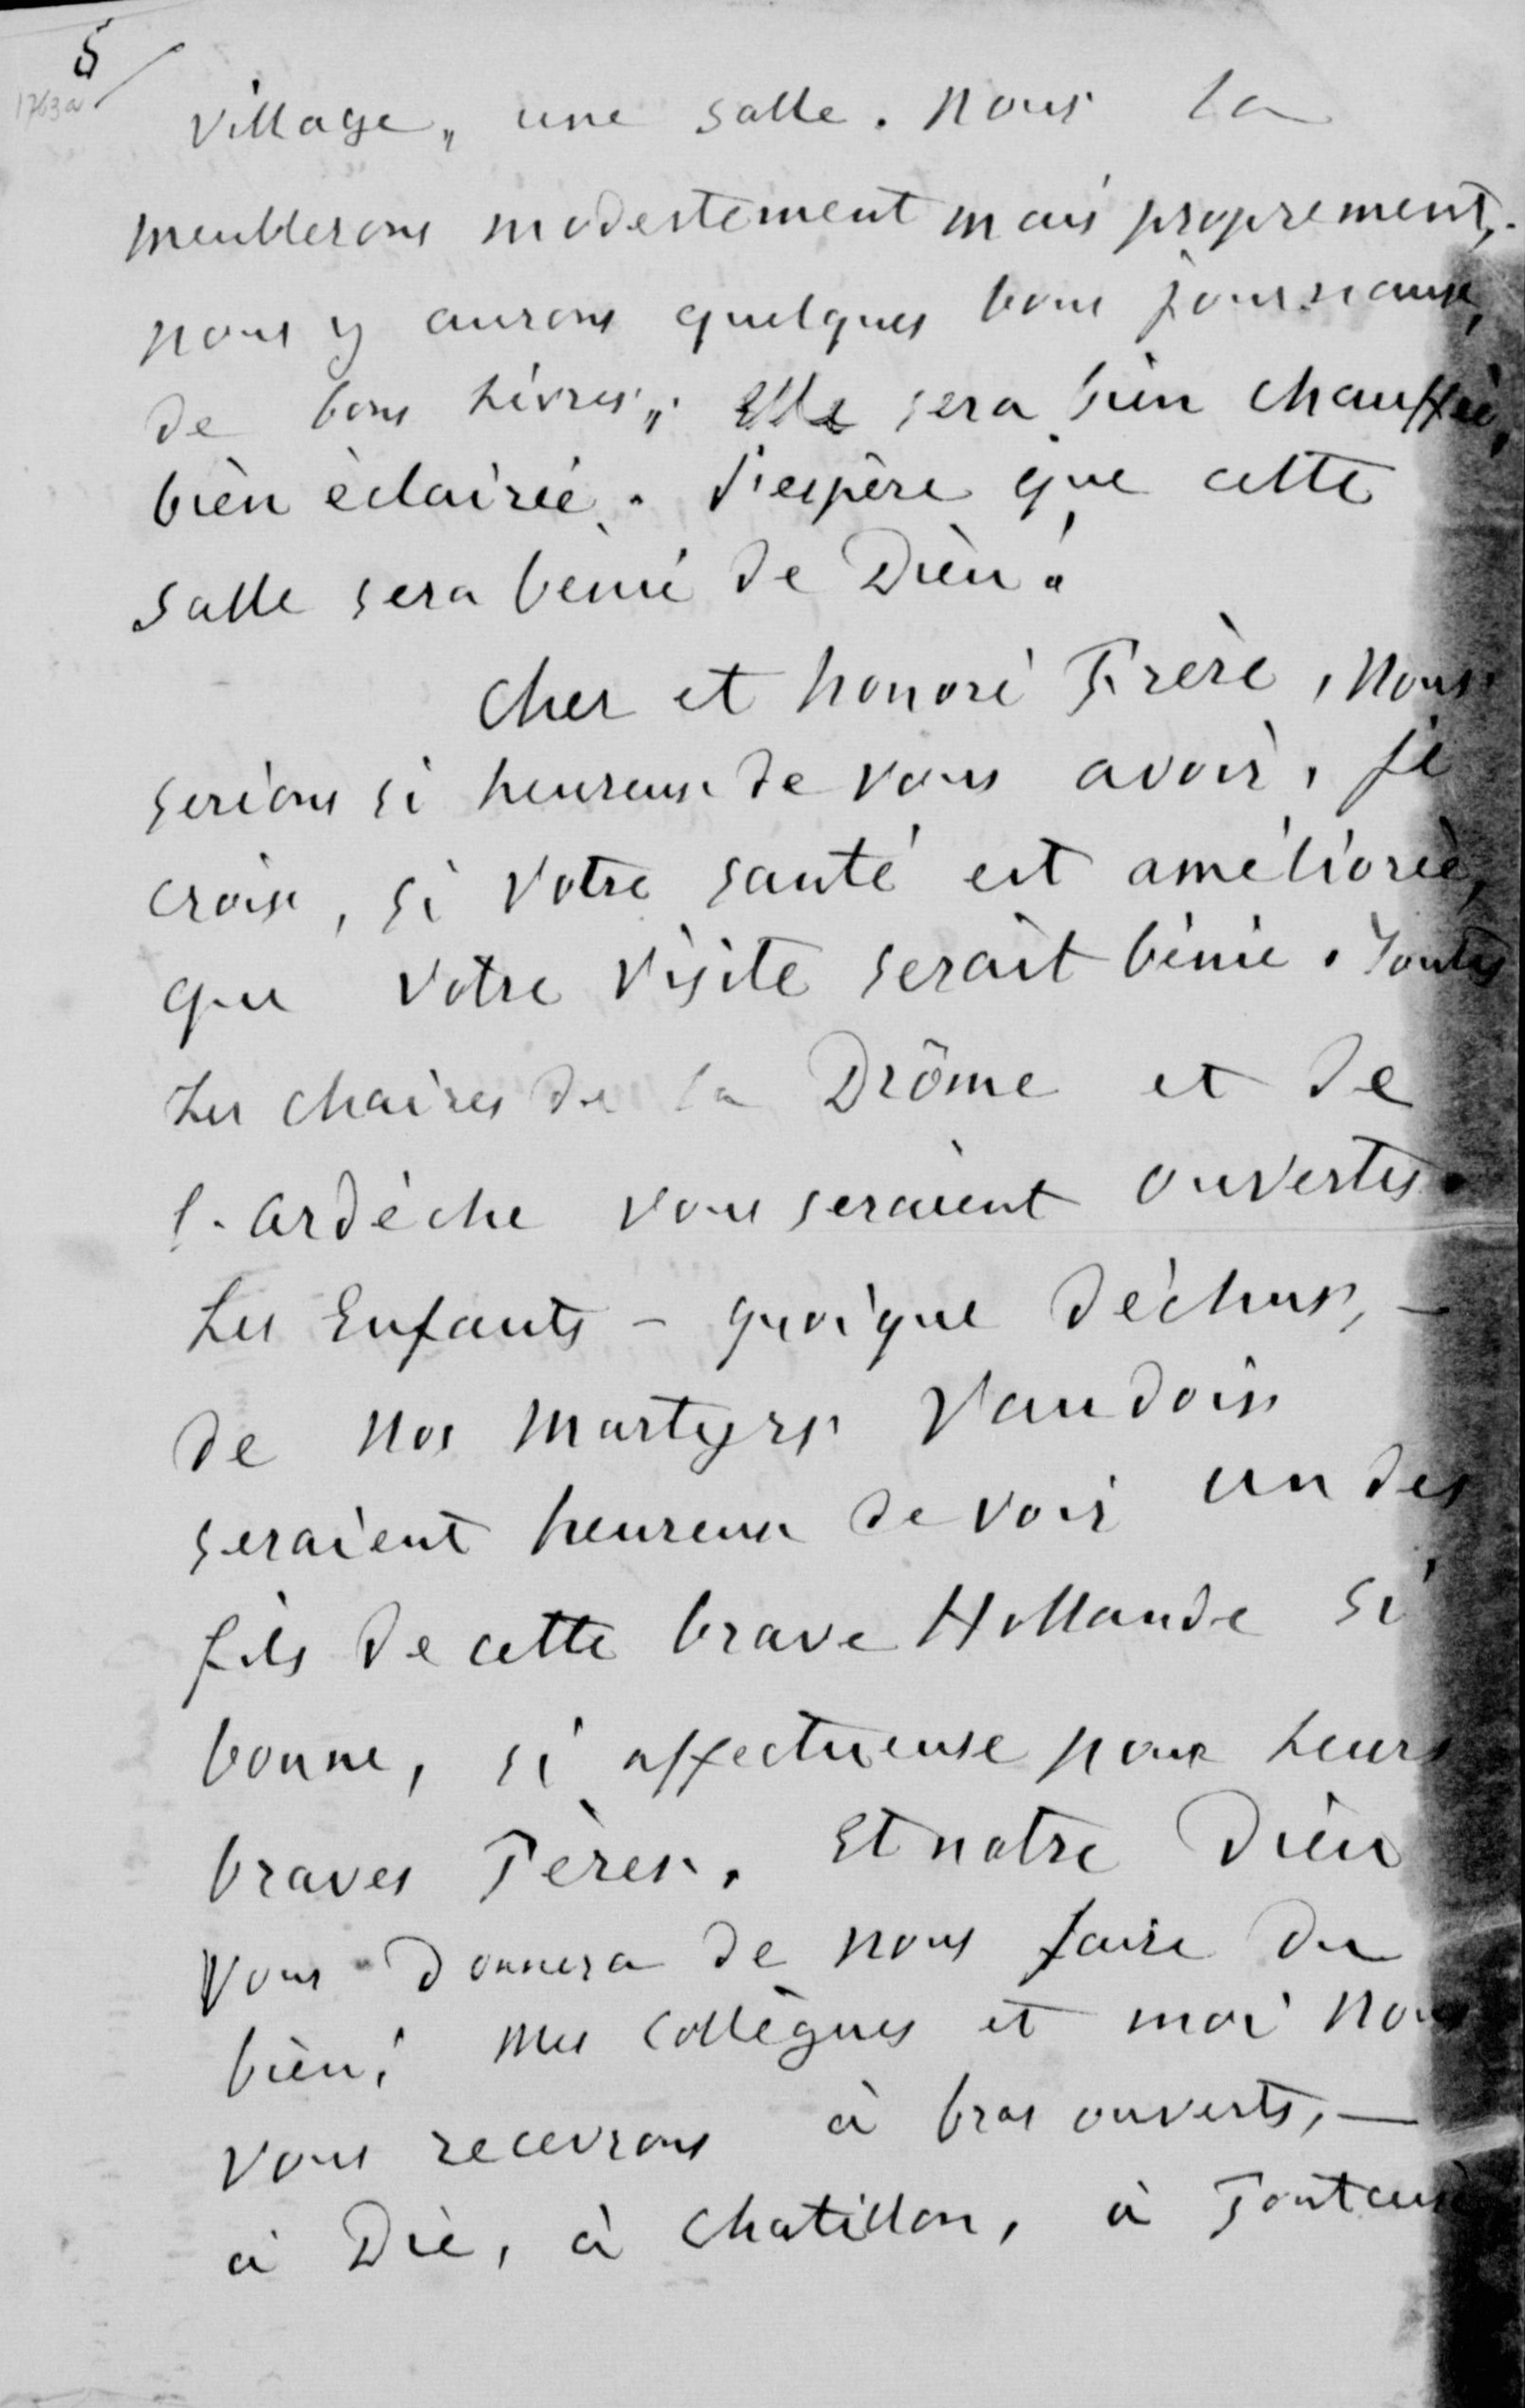 5/
1763a
village, une salle. Nous la
meublerons modestement mais proprement,
nous y aurons quelques bons journaux,
de bons Livres, Elle sera bien chauffée,
bien éclairée. J'espère que cette
salle sera bénie de Dieu!
Cher et honoré Frère, Nous
serions si heureux de vous avoir, je
crois, si votre santé est améliorée,
que votre visite serait bénie. Toutes
Les chaires de la Drôme et de
l'Ardèche vous seraient ouvertes.
Les Enfants – quoique déchus, –
de nos martyrs Vaudois
seraient heureux de voir un des
fils de cette brave Hollande si
bonne, si affectueuse pour Leurs
braves Pères. Et notre Dieu
vous donnera de nous faire du
bien! Mes Collègues et moi nous
vous recevrons à bras ouverts, –
à Die, à Chatillon, à